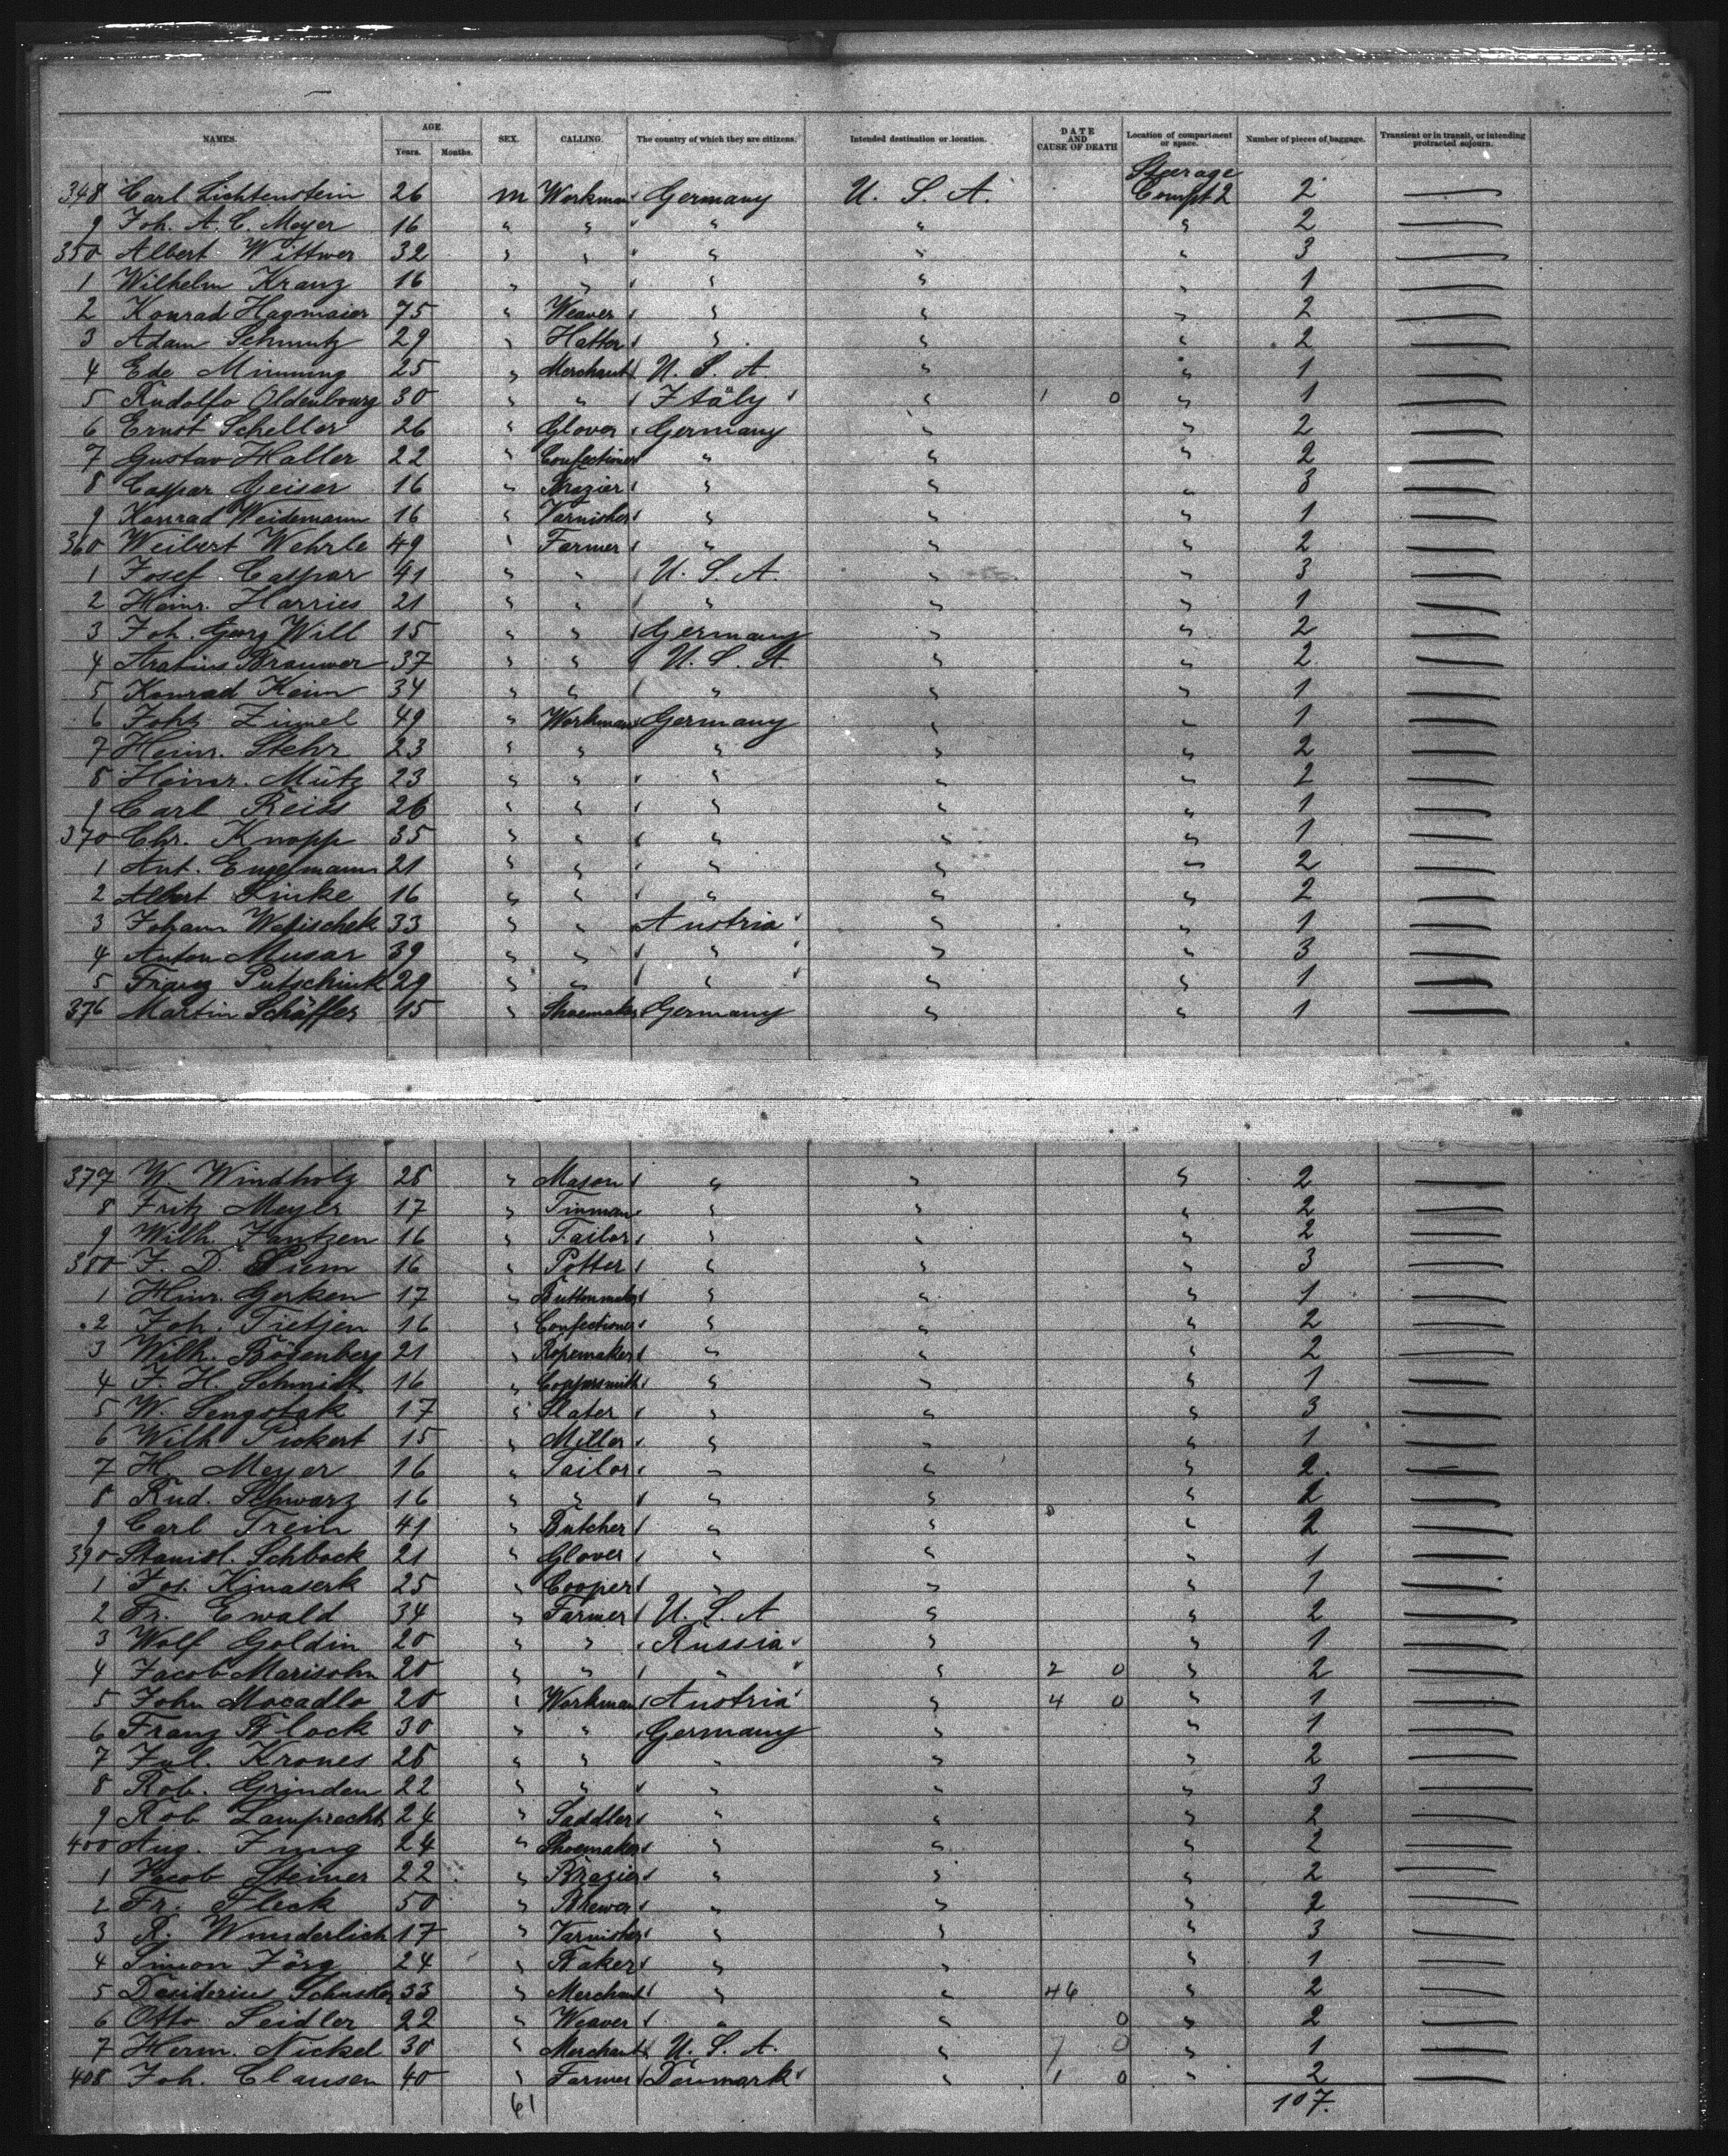 NAMES. AGE. SEX. CALLING. The country of which they are citizens. Intended destination or location. DATE AND CAUSE OF DEATH Location of compartment or space. Number of pieces of baggage. Transient or in transit, or intending protracted sojourn.
Years. Months.
Steerage
348 Carl Lichtenstein 26 m Workman Germany U. S. A. Compt 2 2 —
9 Joh. A. C. Meyer 16 " " " " " 2 —
350 Albert Wittwer 32 " " " " " 3 —
1 Wilhelm Kranz 16 " " " " " 1 —
2 Konrad Hagmaier 75 " Weaver " " " 2 —
3 Adam Schmutz 29 " Hatter " " " 2 —
4 Ede Mimming 25 " Merchant U. S. A " " 1 —
5 Rudolfo Oldenbourg 30 " " Italy " 1 0 " 1 —
6 Ernst Scheller 26 " Glover Germany " " 2 —
7 Gustav Haller 22 " Confectioner " " " 2 —
8 Caspar Geiser 16 " Brazier " " " 3 —
9 Konrad Weidemann 16 " Varnisher " " " 1 —
360 Weibert Wehrle 49 " Farmer " " " 2 —
1 Josef Caspar 41 " " U. S. A. " " 3 —
2 Heinr. Harries 21 " " " " " 1 —
3 Joh. Georg Will 15 " " Germany " " 2 —
4 Brauwer 37 " " U. S. A " " 2 —
5 Konrad Keim 34 " " " " " 1 —
6 Johs Zimel 49 " Workman Germany " " 1 —
7 Heinr. Stehr 23 " " " " " 2 —
8 Heinr. Mütz 23 " " " " " 2 —
9 Carl Reiss 26 " " " " " 1 —
370 Chr. Knopp 35 " " " " " 1 —
1 Ant. Engelmann 21 " " " " " 2 —
2 Albert Linke 16 " " " " " 2 —
3 Johann Wefischek 33 " " Austria " " 1 —
4 Anton Musar 39 " " " " " 3 —
5 Franz Putschink 29 " " " " " 1 —
376 Martin Schäffer 15 " Shoemaker Germany " " 1 —
377 W. Windholz 28 " Mason " " " 2 —
8 Fritz Meyer 17 " Tinman " " " 2 —
9 Wilh. Jantzen 16 " Tailor " " " 2 —
380 J. D. Siem 16 " Potter " " " 3 —
1 Hinr. Gerken 17 " Buttonmaker " " " 1 —
2 Joh. Tietjen 16 " Confectioner " " " 2 —
3 Wilh. Bösenberg 21 " Ropemaker " " " 2 —
4 F. H. Schmidt 16 " Coppersmith " " " 1 —
5 W. Sengstak 17 " Slater " " " 3 —
6 Wilh Pickert 15 " Miller " " " 1 —
7 H. Meyer 16 " Tailor " " " 2 —
8 Rud. Schwarz 16 " " " " " 2 —
9 Carl Trein 41 " Butcher " " " 2 —
390 Stanisl. Schbock 21 " Glover " " " 1 —
1 Jos. Kinaserk 25 " Cooper " " " 1 —
2 Fr. Ewald 34 " Farmer U. S. A " " 2 —
3 Wolf Goldin 20 " " Russia " " 1 —
4 Jacob Marisohn 20 " " " " 2 0 " 2 —
5 John Mocadlo 20 " Workman Austria " 4 0 " 1 —
6 Franz Block 30 " " Germany " " 1 —
7 Jul. Krones 28 " " " " " 2 —
8 Rob. Grinden 22 " " " " " 3 —
9 Rob Lamprecht 24 " Saddler " " " 2 —
400 Aug. Jung 24 " Shoemaker " " " 2 —
1 Jacob Steiner 22 " Brazier " " " 2 —
2 Fr. Fleck 50 " Brewer " " " 2 —
3 R. Wunderlich 17 " Varnisher " " " 3 —
4 Simon Jörg 24 " Baker " " " 1 —
5 Desiderius Schuster 33 " Merchant " " 46 " 2 —
6 Otto Seidler 22 " Weaver " " 0 " 2 —
7 Herm. Nickel 30 " Merchant U. S. A. " 7 0 " 1 —
408 Joh. Clausen 40 " Farmer Denmark " 1 0 " 2 —
61 107.